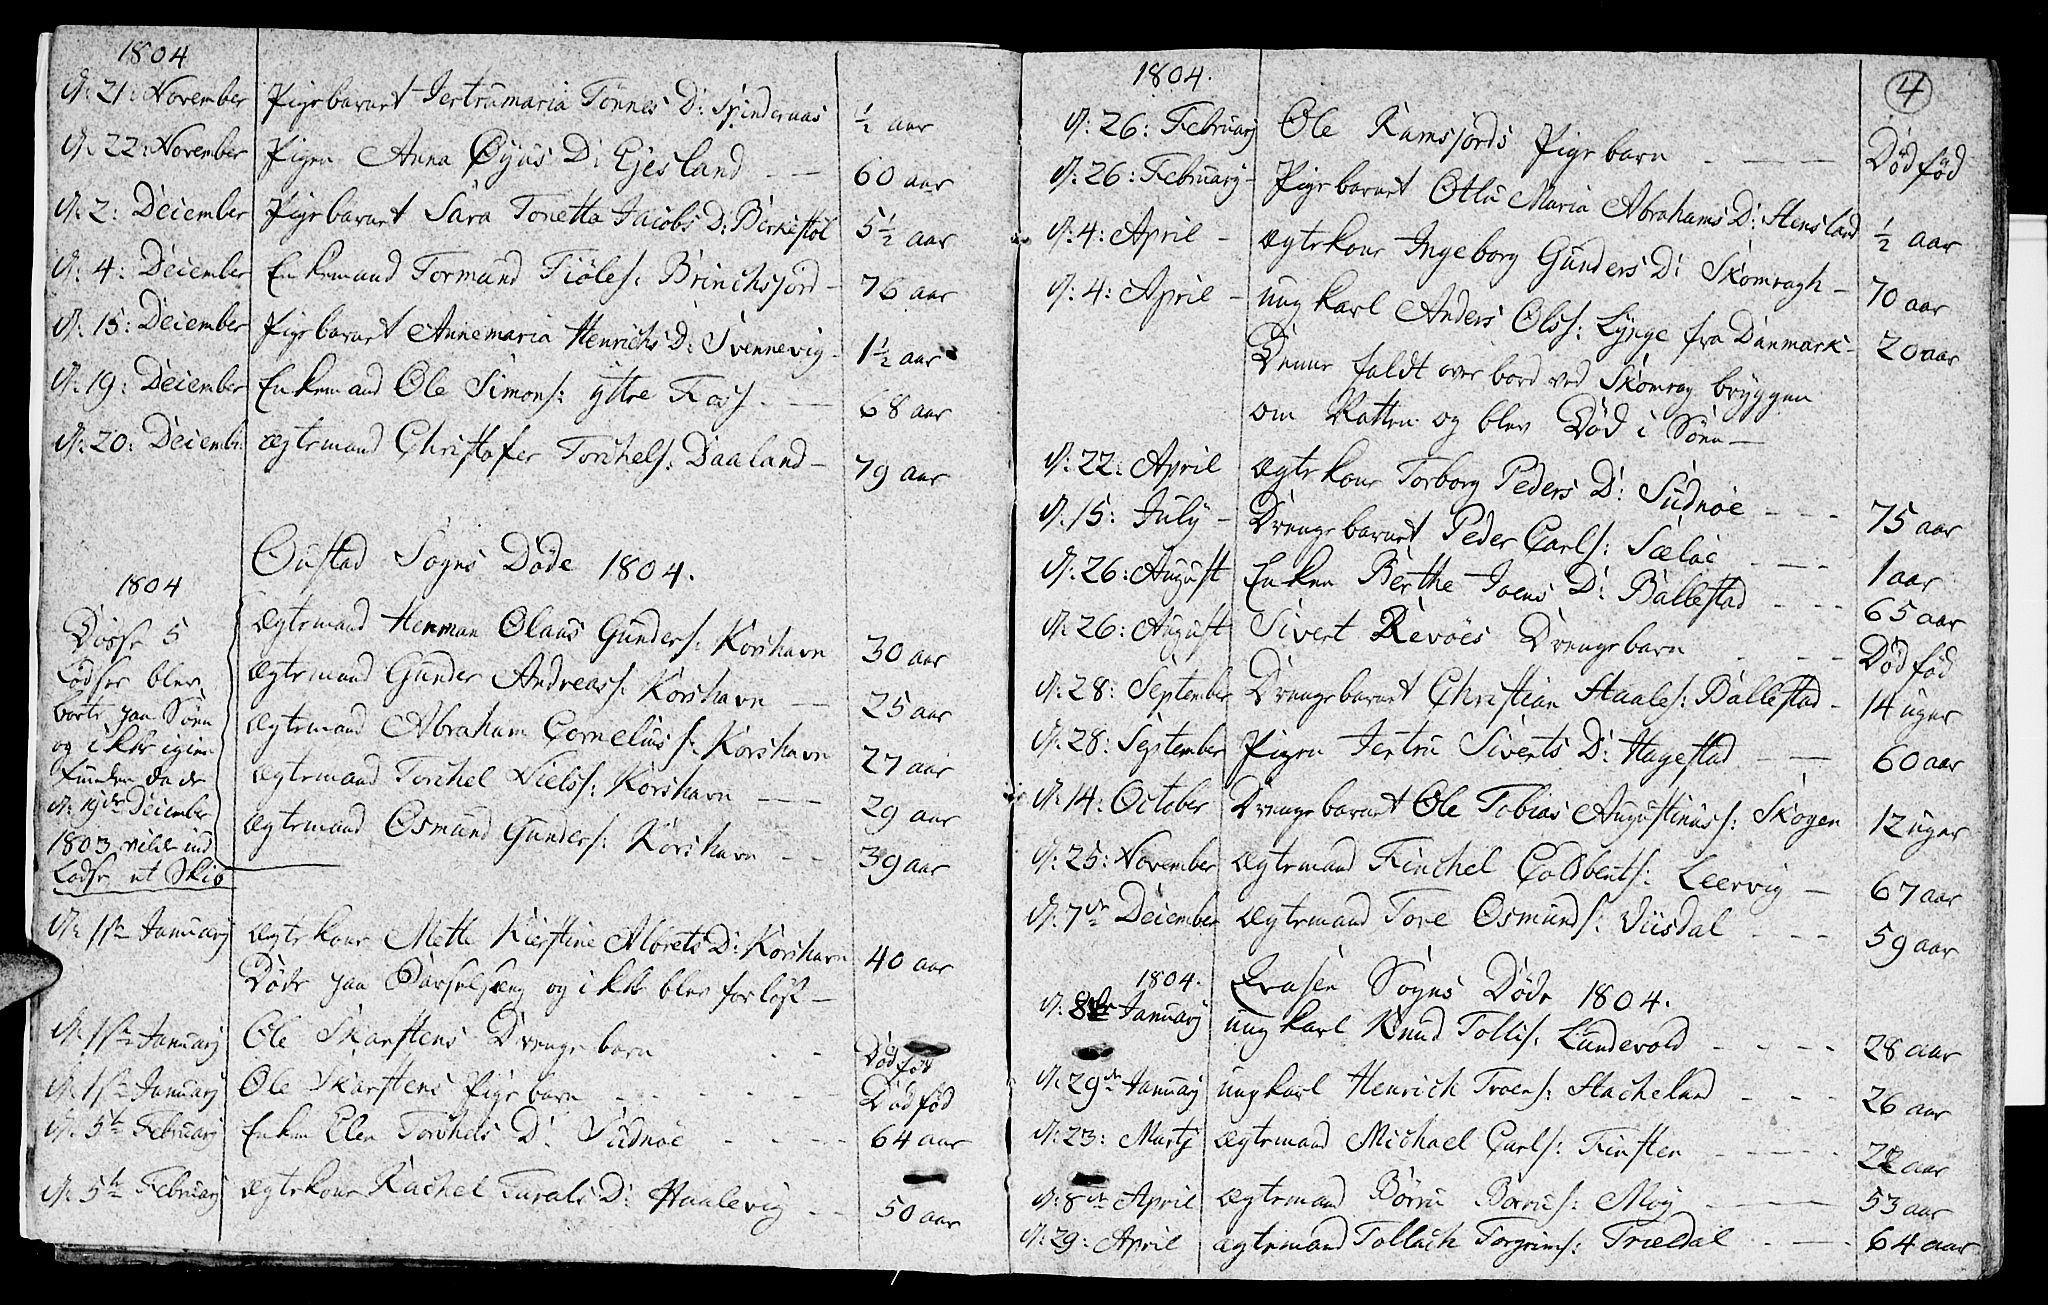 1804
d: 21: November Pigebarnet Jertrumaria Tønnes D: Spindernæs ½ aar
d: 22: November Pigen Anna Øyus D: Ejesland 60 aar
d: 2: December Pigebarnet Sara Tonetta Jacobs D: Birkestøl 5½ aar
d: 4: December Enkemand Tormund Tiøles: Brinchsjord 76 aar
d: 15: December Pigebarnet Annemaria Henrichs D: Svennevig 1½ aar
d: 19: December Enkemand Ole Simons: Yttre Foss 68 aar
d: 20: Decemb: ægtemand Christofer Torchels: Daaland 79 aar
Oustad Sogns Døde 1804.
1804
Disse 5
Lodser blev
borte paa Søen
og ikke igien
funden da de
d: 19de December
1803 vilde ind
Lodse et Skib
ægtemand Herman Olaus Gunders: Korshavn 30 aar
ægtemand Gunder Andreass: Korshavn 25 aar
ægtemand Abraham Corneliuss: Korshavn 27 aar
ægtemand Torchel Nielss: Korshavn 29 aar
ægtemand Osmund Gunders: Korshavn 39 aar
d: 1ste January ægtekone Mette Kierstine Albrets D: Korshavn 40 aar
Døde paa Barselseng og ikke blev forløst
d: 1ste January Ole Skarstens Drengebarn Dødfød
d: 1ste January Ole Skarstens Pigebarn Dødfød
d: 5te February Enken Elen Torchels D: Sudnøe 64 aar
d: 5te February ægtekone Rachel Turals D: Haalevig 50 aar
4
1804.
d: 26: February Ole Ramsjords Pigebarn Dødfød
d: 26: February Pigebarnet Otlu Maria Abrahams D: Stensland ½ aar
d: 4: April ægtekone Ingeborg Gunders D: Skomragh 70 aar
d: 4: April ungkarl Anders Olss: Lynge fra Danmark 20 aar
Denne faldt over bord ved Skomrag bryggen
om Natten og blev Død i Søen
d: 22: April ægtekone Torborg Peders D: Sudnøe 75 aar
d: 15: July Drengebarnet Peder Carls: Sæløe 1 aar
d: 26: August Enken Berthe Joens D: Ballestad 65 aar
d: 26: August Sivert Revøes Drengebarn Dødfød
d: 28: September Drengebarnet Christian Staales: Ballestad 14 uger
d: 28: September Pigen Jertru Siverts D: Hagestad 60 aar
d: 14: October Drengebarnet Ole Tobias Augustinuss: Skogen 12 uger
d: 25: November ægtemand Finchel Coldbents: Leervig 67 aar
d: 7de December ægtemand Tore Osmunds: Viisdal 59 aar
1804. Qvasen Sogns Døde 1804.
d: 8de January ungkarl Knud Tollis: Lundevold 28 aar
d: 29de January ungkarl Henrich Troens: Stacheland 26 aar
d: 23: Martj ægtemand Michael Carls: Finsten aar
d: 8de April ægtemand Børru Borrus: Moy 53 aar
d: 29: April ægtemand Tollach Torgrims: Trædal 64 aar